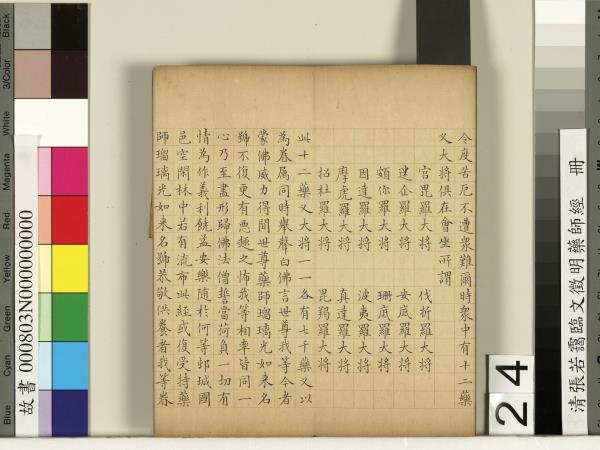 令度苦厄不遭眾難爾時眾中有十二藥
叉大將俱在會坐所謂
宮毘羅大將 伐折羅大將
迷企羅大將 安底羅大將
頞你羅大將 珊底羅大將
因達羅大將 波夷羅大將
摩虎羅大將 真達羅大將
招杜羅大將 毘羯羅大將
此十二藥叉大將一一各有七千藥叉以
為眷屬同時舉聲白佛言世尊我等今者
蒙佛威力得聞世尊藥師瑠璃光如來名
號不復更有惡趣之怖我等相率皆同一
心乃至盡形歸佛法僧誓當荷負一切有
情為作義利饒益安樂隨於何等邨城國
邑空閑林中若有流布此經或復受持藥
師瑠璃光如來名號恭敬供養者我等眷
清張若靄臨文徵明藥師經 冊
24
故書 000803N000000000
Black
3/Color
White
Magenta
Red
Yellow
Green
Cyan
Blue